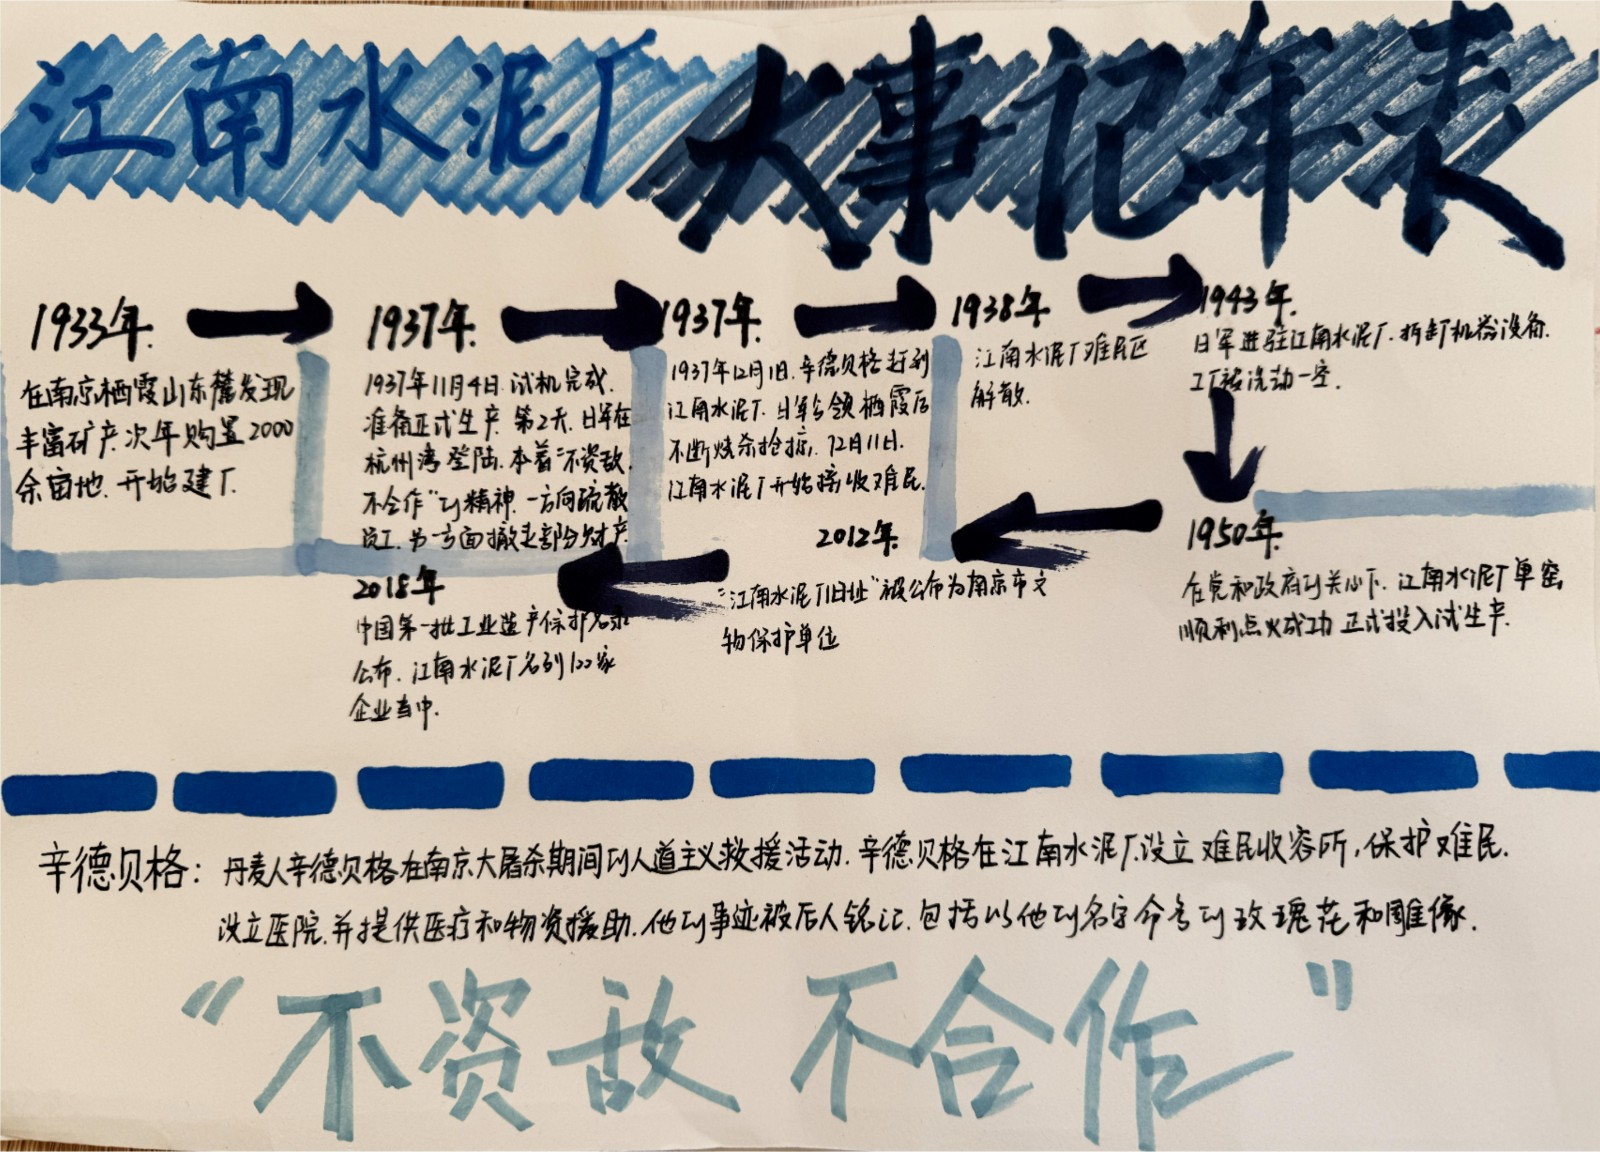 江南水泥厂大事记年表
1933年.
在南京栖霞山东麓发现
丰富矿产.次年购置2000
余亩地.开始建厂.
1937年.
1937年11月4日.试机完成.
准备正式生产.第2天.日军在
杭州湾登陆.本着“不资敌.
不合作”的精神.一方向疏散
员工.另一方面撤走部分财产.
1937年.
1937年12月1日.辛德贝格赶到
江南水泥厂.日军占领栖霞后
不断烧杀抢掠.12月11日.
江南水泥厂开始接收难民.
1938年.
江南水泥厂难民区
解散.
1943年.
日军进驻江南水泥厂.拆卸机器设备.
工厂被洗劫一空.
1950年.
在党和政府的关心下.江南水泥厂单窑
顺利点火成功.正式投入试生产.
2012年.
“江南水泥厂旧址”被公布为南京市文
物保护单位
2018年
中国第一批工业遗产保护名录
公布.江南水泥厂名列100家
企业当中.
辛德贝格:丹麦人辛德贝格在南京大屠杀期间的人道主义救援活动.辛德贝格在江南水泥厂设立难民收容所,保护难民.
设立医院.并提供医疗和物资援助.他的事迹被后人铭记.包括以他的名字命名的玫瑰花和雕像.
“不资敌 不合作”